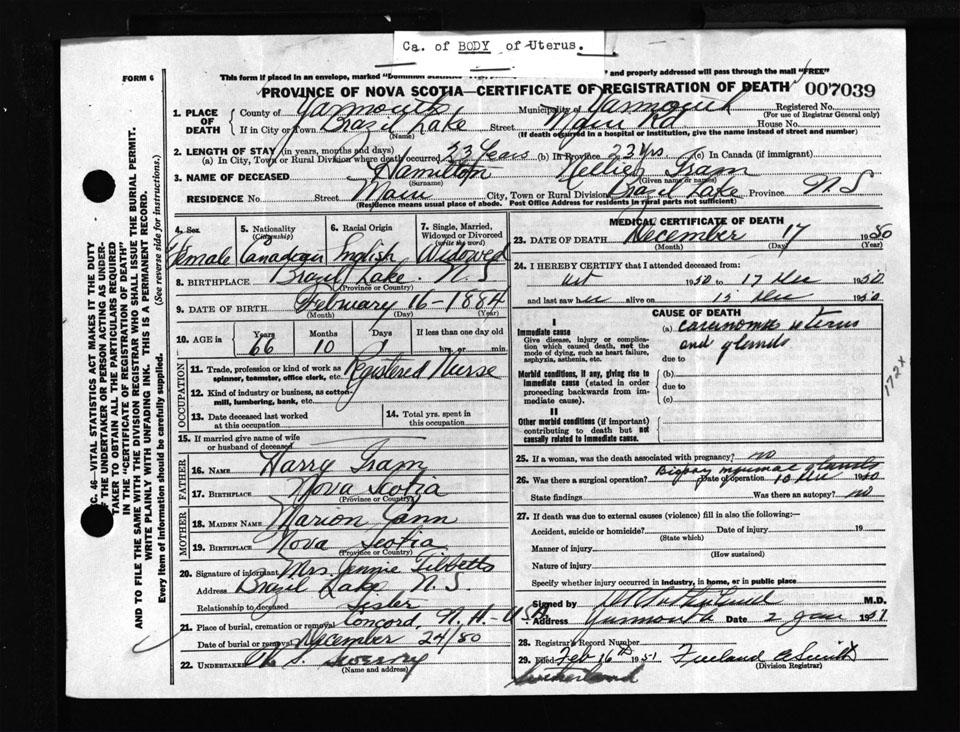 Ca. of BODY of Uterus.
FORM 6
This form if placed in an envelope, marked "Dominion and properly addressed will pass through the mail "FREE"
PROVINCE OF NOVA SCOTIA—CERTIFICATE OF REGISTRATION OF DEATH 007039
1. PLACE OF DEATH County of Yarmouth Municipality of Yarmouth Registered No.
(For use of Registrar General only)
If in City or Town Brazil Lake Street Main Rd House No.
(Name) (If death occurred in a hospital or institution, give the name instead of street and number)
2. LENGTH OF STAY (in years, months and days)
(a) In City, Town or Rural Division where death occurred 23 Years (b) in Province 23 yrs (c) In Canada (if immigrant)
3. NAME OF DECEASED Hamilton Nellie
(Surname) (Given name or names)
RESIDENCE No. Street Main City, Town or Rural Division Brazil Lake Province N S
(Residence means usual place of abode. Post Office Address for residents in rural parts not sufficient)
4. Sex 5. Nationality (Citizenship) 6. Racial Origin 7. Single, Married, Widowed or Divorced (write the word)
Female Canadian English Widowed
8. BIRTHPLACE Brazil Lake N. S
(Province or Country)
9. DATE OF BIRTH February 16-1884
(Month) (Day) (Year)
10. AGE in Years Months Days If less than one day old
66 10 1 hrs. or min.
OCCUPATION
11. Trade, profession or kind of work as spinner, teamster, office clerk, etc. Registered Nurse
12. Kind of industry or business, as cotton-mill, lumbering, bank, etc.
13. Date deceased last worked at this occupation
14. Total yrs. spent in this occupation
15. If married give name of wife or husband of deceased
FATHER
16. NAME Harry
17. BIRTHPLACE Nova Scotia
(Province or Country)
MOTHER
18. MAIDEN NAME Marion Cann
19. BIRTHPLACE Nova Scotia
(Province or Country)
20. Signature of informant Mrs. Jennie Tibbetts
Address Brazil Lake N. S.
Relationship to deceased Sister
21. Place of burial, cremation or removal Concord, N. H. U.S.A
Date of December 24/50
22. UNDERTAKER S. Sweeny
(Name and address)
MEDICAL CERTIFICATE OF DEATH
23. DATE OF DEATH December 17 1950
(Month) (Day) (Year)
24. I HEREBY CERTIFY that I attended deceased from:
Oct 1950 to 17 Dec 1950
and last saw her alive on 15 Dec 1950
CAUSE OF DEATH
I
Immediate cause (a) carcinoma uterus
Give disease, injury or complication which caused death, not the mode of dying, such as heart failure, asphyxia, asthenia, etc.
and glands
due to
Morbid conditions, if any, giving rise to immediate cause (stated in order proceeding backwards from immediate cause).
(b)
due to
(c)
172x
II
Other morbid conditions (if important) contributing to death but not causally related to immediate cause.
25. If a woman, was the death associated with pregnancy? no
26. Was there a surgical operation? Biopsy glands Date of operation 10 Dec 1950
State findings Was there an autopsy? no
27. If death was due to external causes (violence) fill in also the following:
Accident, suicide or homicide? Date of injury 19
(State which)
Manner of injury
(How sustained)
Nature of injury
Specify whether injury occurred in industry, in home, or in public place
Signed by M.D.
Address Yarmouth Date 2 Jan 1951
28. Registrar's Record Number
29. Filed Feb 16th 1951 Freeland E Smith
(Division Registrar)
Sutherland
C. 46—VITAL STATISTICS ACT MAKES IT THE DUTY
OF THE UNDERTAKER OR PERSON ACTING AS UNDER-
TAKER TO OBTAIN ALL THE PARTICULARS REQUIRED
IN THE "CERTIFICATE OF REGISTRATION OF DEATH"
AND TO FILE THE SAME WITH THE DIVISION REGISTRAR WHO SHALL ISSUE THE BURIAL PERMIT.
WRITE PLAINLY WITH UNFADING INK. THIS IS A PERMANENT RECORD.
Every item of Information should be carefully supplied. (See reverse side for instructions.)